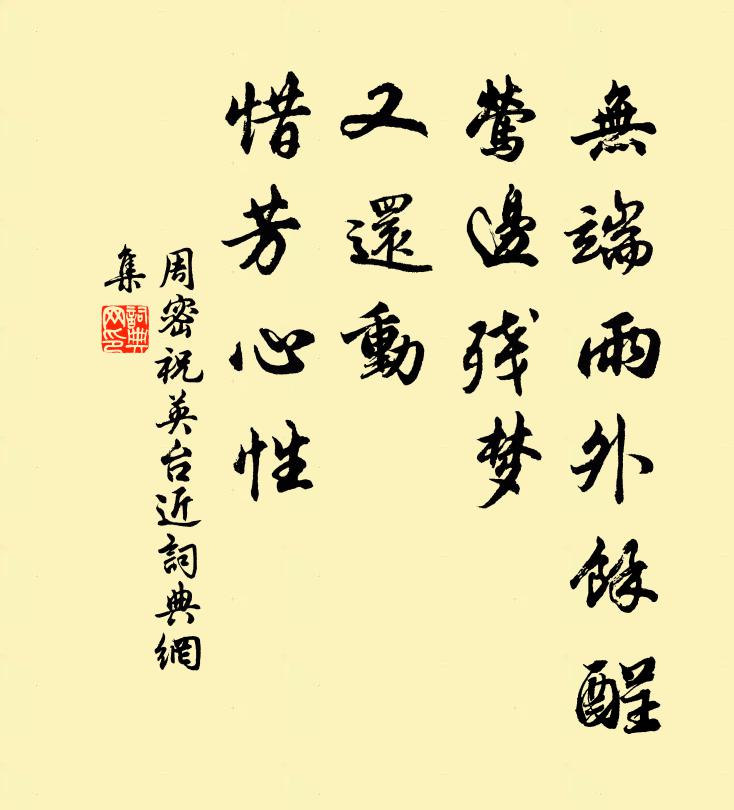 無端雨外餘酲
鶯邊残梦
又還動
惜芳心性
周密祝英台近詞典網
集
詞典网